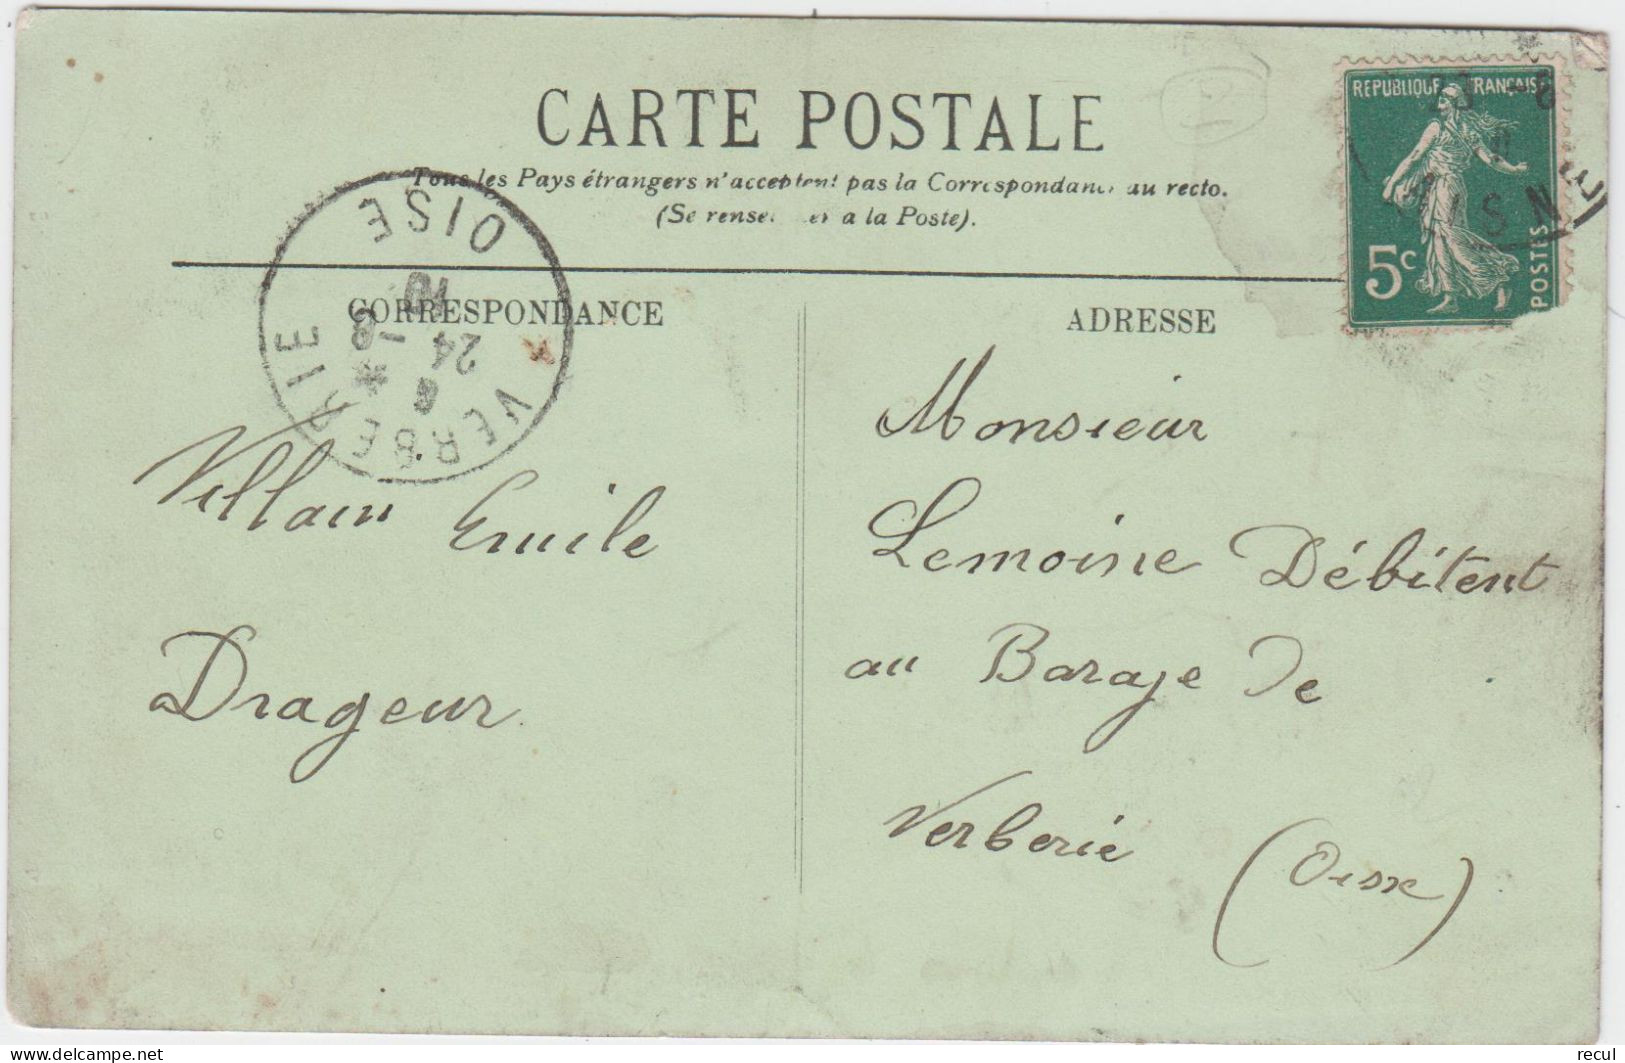 CARTE POSTALE
Tous les Pays étrangers n'acceptent pas la Correspondance au recto.
(Se à la Poste).
REPUBLIQUE FRANÇAISE
5c
POSTES
23 -8
AISN
OISE
VERBERIE
10
24 -8
8
*
CORRESPONDANCE
ADRESSE
Villain Emile
Drageur
Monsieur
Lemoine Débitent
au Baraje De
Verberie (Oise)
delcampe.net
recul